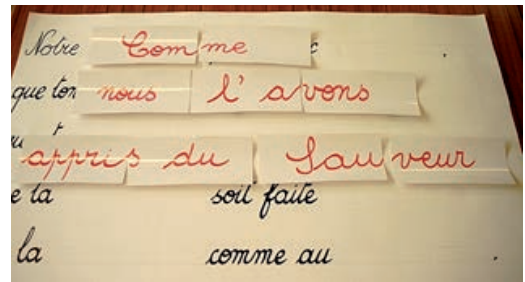 Notre Comme
que ton nous l'avons
appris du Sauveur
e la soit faite
la comme au